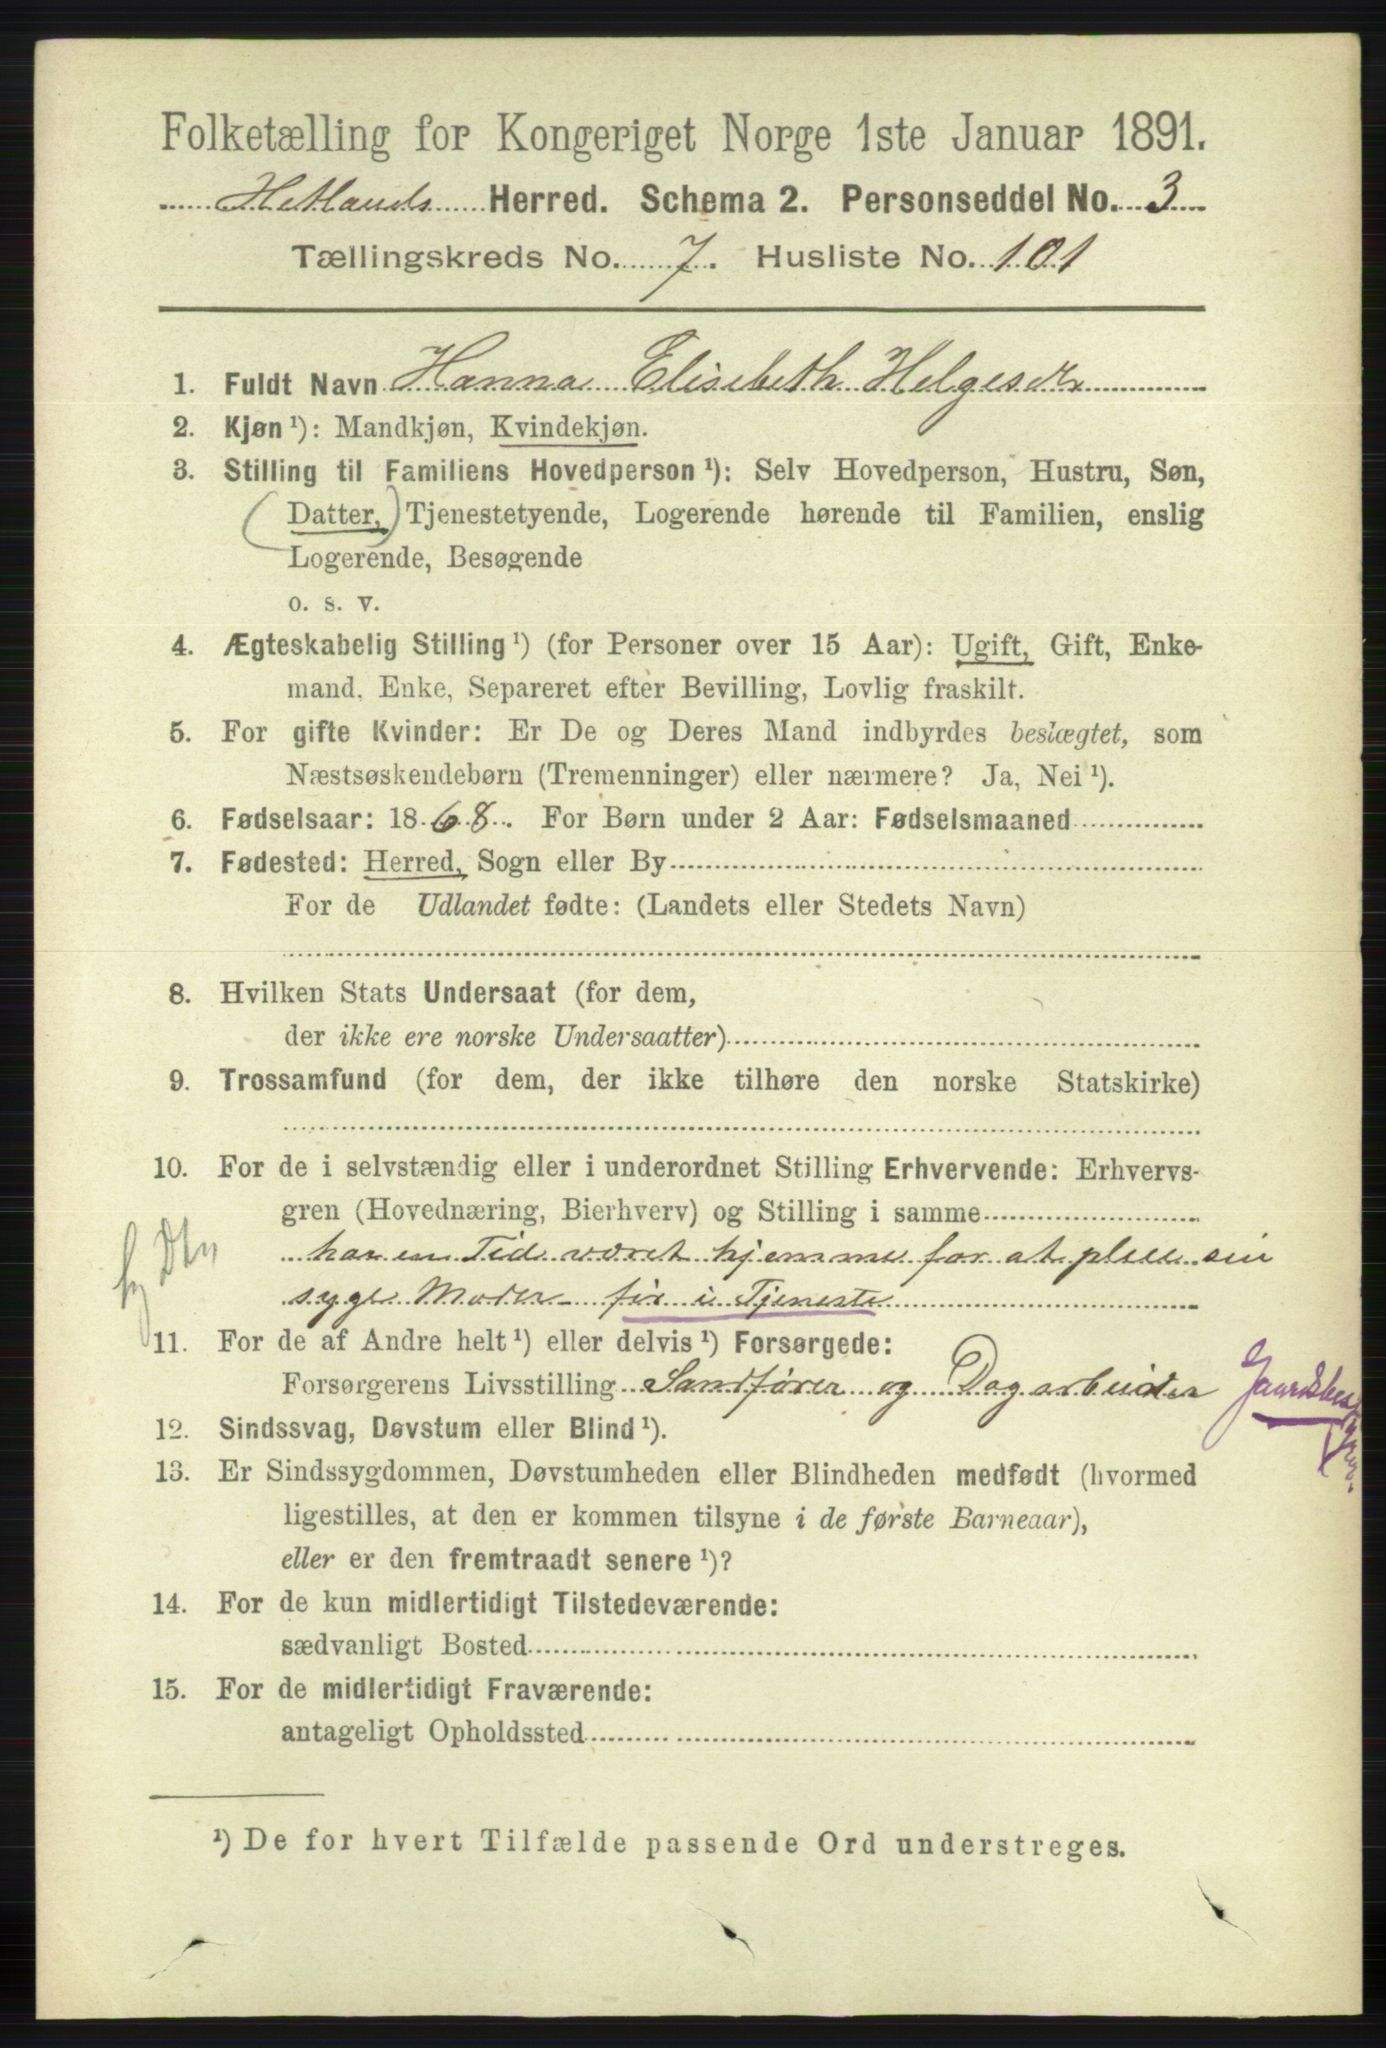 Folketælling for Kongeriget Norge 1ste Januar 1891.
Hetlands Herred. Schema 2. Personseddel No. 3
Tællingskreds No. 7. Husliste No. 101
1. Fuldt Navn Hanna Elisebeth Helgesdtr
2. Kjøn ¹): Mandkjøn, Kvindekjøn.
3. Stilling til Familiens Hovedperson ¹): Selv Hovedperson, Hustru, Søn,
(Datter,) Tjenestetyende, Logerende hørende til Familien, enslig
Logerende, Besøgende
o. s. v.
4. Ægteskabelig Stilling ¹) (for Personer over 15 Aar): Ugift, Gift, Enke-
mand, Enke, Separeret efter Bevilling, Lovlig fraskilt.
5. For gifte Kvinder: Er De og Deres Mand indbyrdes beslægtet, som
Næstsøskendebørn (Tremenninger) eller nærmere? Ja, Nei ¹).
6. Fødselsaar: 1868. For Børn under 2 Aar: Fødselsmaaned
7. Fødested: Herred, Sogn eller By
For de Udlandet fødte: (Landets eller Stedets Navn)
8. Hvilken Stats Undersaat (for dem,
der ikke ere norske Undersaatter)
9. Trossamfund (for dem, der ikke tilhøre den norske Statskirke)
10. For de i selvstændig eller i underordnet Stilling Erhvervende: Erhvervs-
gren (Hovednæring, Bierhverv) og Stilling i samme
har en Tid været hjemme for at pleie sin
syge Moder før i Tjeneste
11. For de af Andre helt ¹) eller delvis ¹) Forsørgede:
Forsørgerens Livsstilling Sandfører og Dagarbeider
12. Sindssvag, Døvstum eller Blind ¹).
13. Er Sindssygdommen, Døvstumheden eller Blindheden medfødt (hvormed
ligestilles, at den er kommen tilsyne i de første Barneaar),
eller er den fremtraadt senere ¹)?
14. For de kun midlertidigt Tilstedeværende:
sædvanligt Bosted
15. For de midlertidigt Fraværende:
antageligt Opholdssted
¹) De for hvert Tilfælde passende Ord understreges.